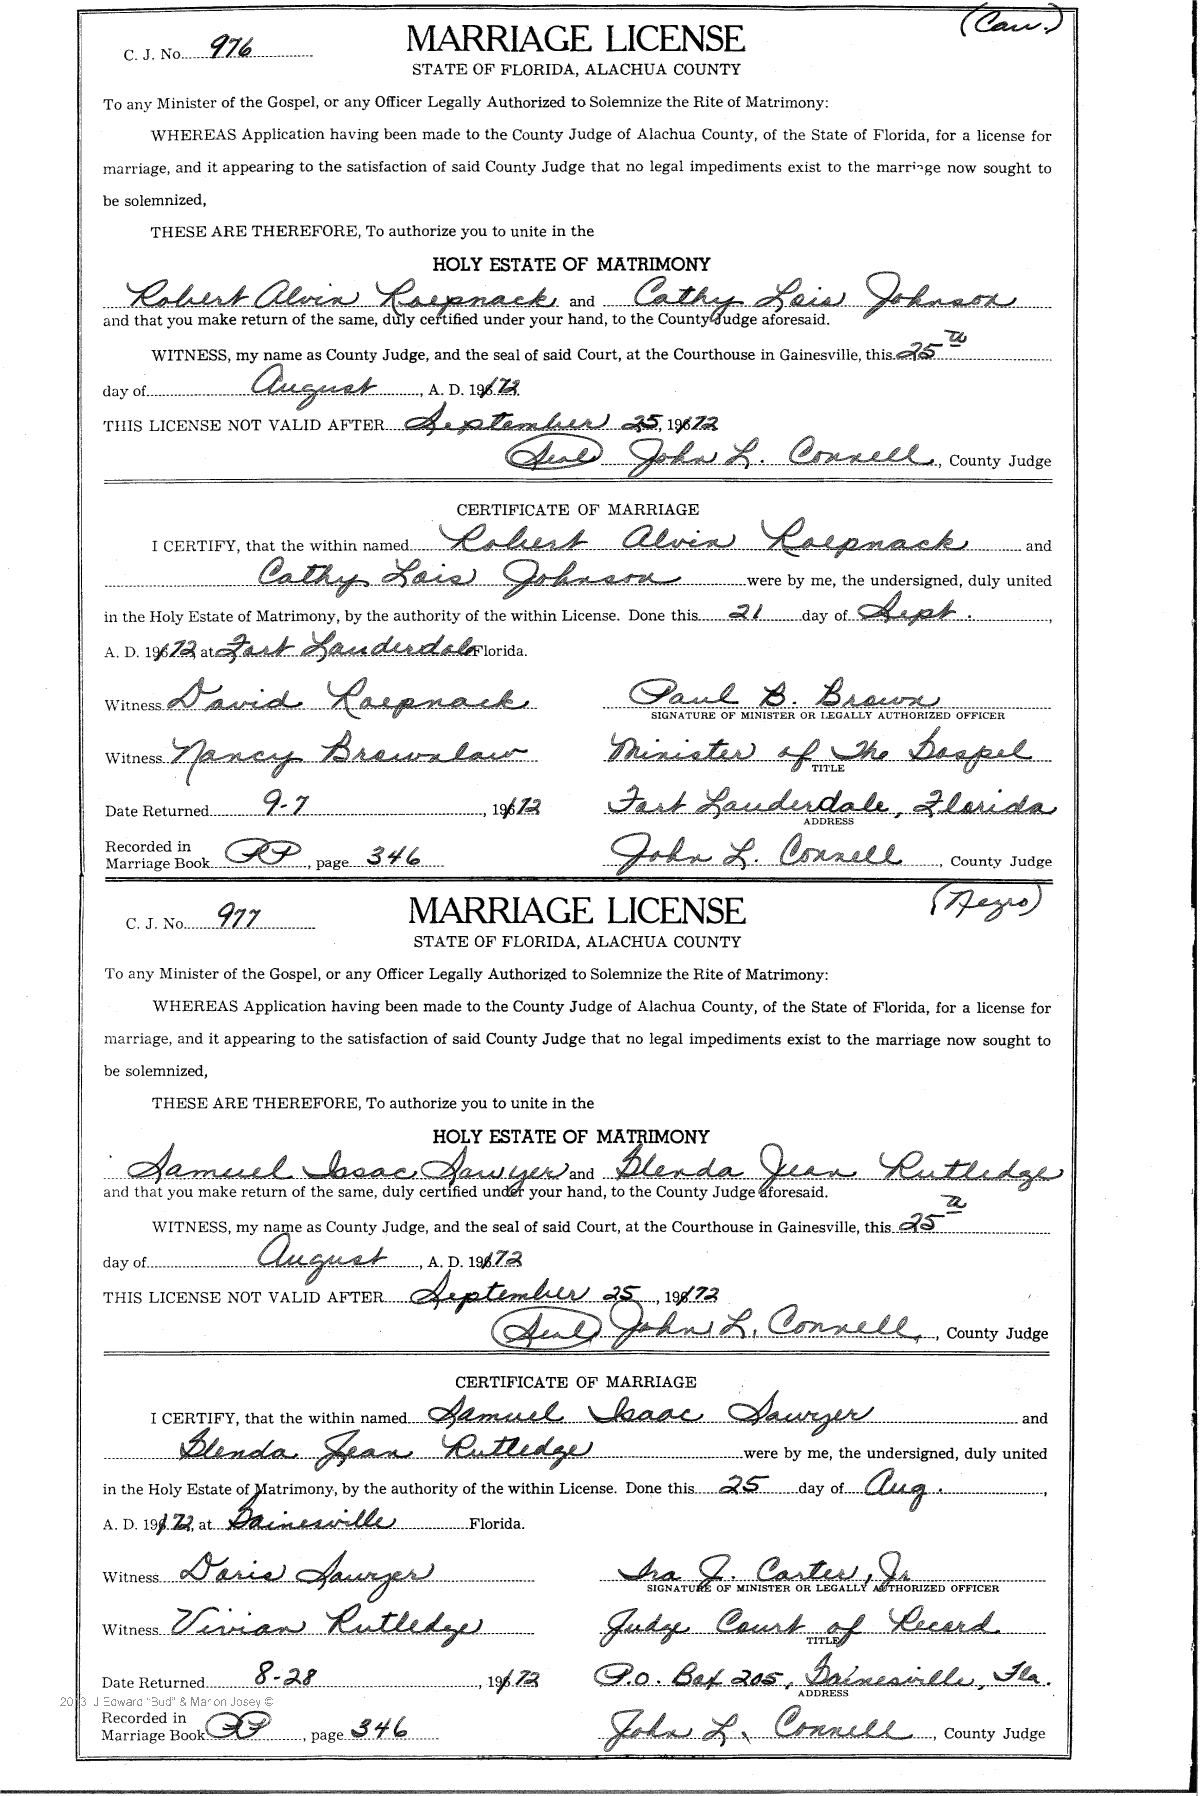 (Cau.)
C. J. No. 976
MARRIAGE LICENSE
STATE OF FLORIDA, ALACHUA COUNTY
To any Minister of the Gospel, or any Officer Legally Authorized to Solemnize the Rite of Matrimony:
WHEREAS Application having been made to the County Judge of Alachua County, of the State of Florida, for a license for
marriage, and it appearing to the satisfaction of said County Judge that no legal impediments exist to the marriage now sought to
be solemnized,
THESE ARE THEREFORE, To authorize you to unite in the
HOLY ESTATE OF MATRIMONY
Robert Alvin Roepnack and Cathy Lois Johnson
and that you make return of the same, duly certified under your hand, to the County Judge aforesaid.
WITNESS, my name as County Judge, and the seal of said Court, at the Courthouse in Gainesville, this 25th
day of August, A. D. 1972
THIS LICENSE NOT VALID AFTER September 25, 1972
(Seal) John L. Connell, County Judge
CERTIFICATE OF MARRIAGE
I CERTIFY, that the within named Robert Alvin Roepnack and
Cathy Lois Johnson were by me, the undersigned, duly united
in the Holy Estate of Matrimony, by the authority of the within License. Done this 21 day of Sept.,
A. D. 1972, at Fort Lauderdale Florida.
Witness David Roepnack Paul B. Brown
SIGNATURE OF MINISTER OR LEGALLY AUTHORIZED OFFICER
Witness Nancy Brownlaw Minister of The Gospel
TITLE
Date Returned 9-7, 1972 Fort Lauderdale, Florida
ADDRESS
Recorded in
Marriage Book PP, page 346 John L. Connell, County Judge
(Negro)
C. J. No. 977
MARRIAGE LICENSE
STATE OF FLORIDA, ALACHUA COUNTY
To any Minister of the Gospel, or any Officer Legally Authorized to Solemnize the Rite of Matrimony:
WHEREAS Application having been made to the County Judge of Alachua County, of the State of Florida, for a license for
marriage, and it appearing to the satisfaction of said County Judge that no legal impediments exist to the marriage now sought to
be solemnized,
THESE ARE THEREFORE, To authorize you to unite in the
HOLY ESTATE OF MATRIMONY
Samuel Isaac Sawyer and Glenda Jean Rutledge
and that you make return of the same, duly certified under your hand, to the County Judge aforesaid.
WITNESS, my name as County Judge, and the seal of said Court, at the Courthouse in Gainesville, this 25th
day of August, A. D. 1972
THIS LICENSE NOT VALID AFTER September 25, 1972
(Seal) John L. Connell, County Judge
CERTIFICATE OF MARRIAGE
I CERTIFY, that the within named Samuel Isaac Sawyer and
Glenda Jean Rutledge were by me, the undersigned, duly united
in the Holy Estate of Matrimony, by the authority of the within License. Done this 25 day of Aug.,
A. D. 1972, at Gainesville Florida.
Witness Doris Sawyer Ira J. Carter, Jr
SIGNATURE OF MINISTER OR LEGALLY AUTHORIZED OFFICER
Witness Vivian Rutledge Judge Court of Record
TITLE
Date Returned 8-28, 1972 P.O. Box 205, Gainesville, Fla.
ADDRESS
2013 J Edward "Bud" & Marion Josey ©
Recorded in
Marriage Book PP, page 346 John L. Connell, County Judge